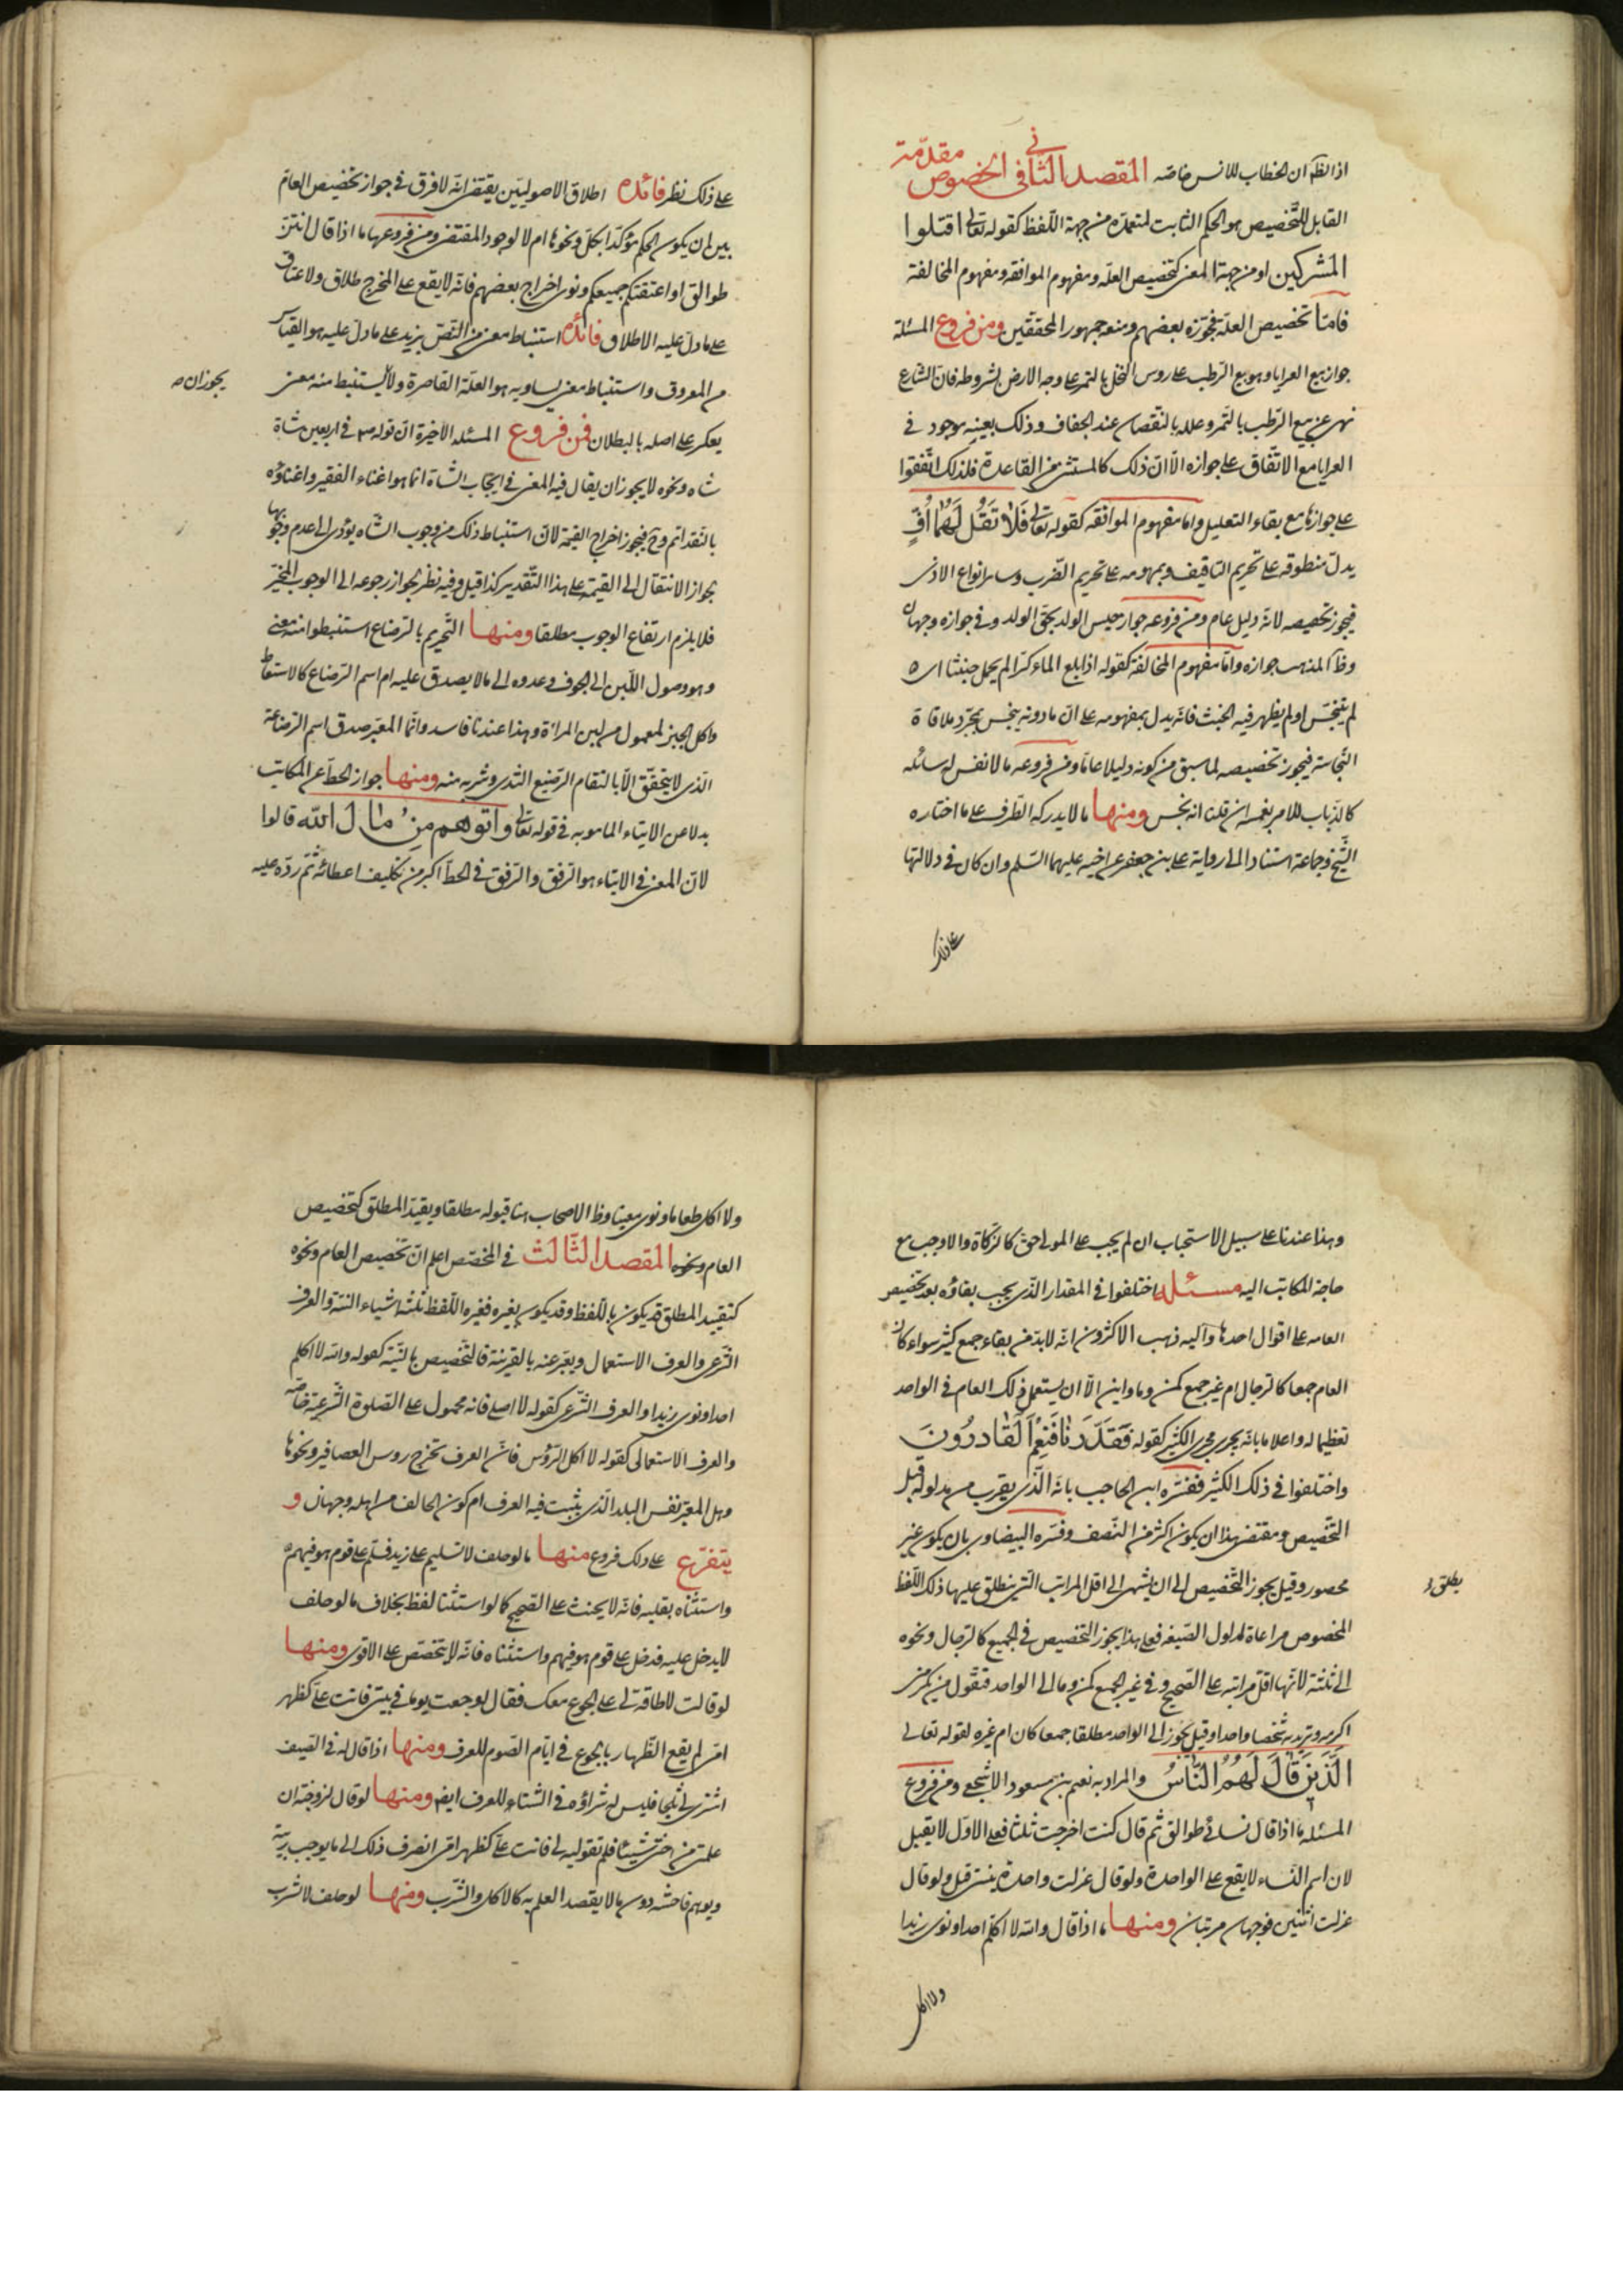 اذ الظ ان الخطاب للانس خاصه المقصد الثاني في الخصوص مقدمة
القابل للتخصيص هو الحكم الثابت لمتعدد من جهة اللفظ كقوله تعالى اقتلوا
المشركين او من جهة المعنى كتخصيص العله ومفهوم الموافقه ومفهوم المخالفة
فاما تخصيص العلة فجوزه بعضهم ومنعه جمهور المحققين ومن فروع المسئلة
جواز بيع العرايا وهو بيع الرطب على روس النخل بالتمر على وجه الارض بشروطه فان الشارع
نهى عن بيع الرطب بالتمر وعلله بالنقصان عند الجفاف وذلك بعينه موجود في
العرايا مع الاتفاق على جوازه الا ان ذلك كالمستثنى من القاعدة فلذلك اتفقوا
على جوازها مع بقاء التعليل واما مفهوم الموافقه كقوله تعالى فلا تقل لهما اف
يدل منطوقه على تحريم التافيف وبمفهومه على تحريم الضرب وساير انواع الاذى
فيجوز تخصيصه لانه دليل عام ومن فروعه جواز حبس الوالد بحق الولد وفي جوازه وجهان
وظ المذهب جوازه واما مفهوم المخالفة كقوله اذا بلغ الماء كرا لم يحمل خبثا اي
لم ينجس او لم يظهر فيه الخبث فانه يدل بمفهومه على ان ما دونه ينجس بمجرد ملاقاة
النجاسة فيجوز تخصيصه لما سبق من كونه دليلا عاما ومن فروعه ما لا نفس له سائله
كالذباب للامر بغمسه ان قلنا انه نجس ومنها ما لا يدركه الطرف على ما اختاره
الشيخ وجماعة استنادا الى رواية علي بن جعفر عن اخيه عليهما السلم وان كان في دلالتها
على ذلك
على ذلك نظر فائدة اطلاق الاصوليين يقتضي انه لا فرق في جواز تخصيص العام
بين ان يكون الحكم مؤكدا بكل ونحوها ام لا لوجود المقتضي ومن فروعها ما اذا قال انتن
طوالق او اعتقتكم جميعكم ونوى اخراج بعضهم فانه لا يقع على المخرج طلاق ولا عتاق
على ما دل عليه الاطلاق فائدة استنباط معنى من النص يزيد على ما دل عليه هو القياس
المعروف واستنباط معنى يساويه هو العلة القاصرة ولا يستنبط منه معنى
يجوز ان
يعكر على اصله بالبطلان فمن فروع المسئله الاخيرة ان قوله ص في اربعين شاة
شاه ونحوه لا يجوز ان يقال فيه المعنى في ايجاب الشاة انما هو اغناء الفقير واغناؤه
بالنقد اتم وح فيجوز اخراج القيمة لان استنباط ذلك من وجوب الشاه يؤدى الى عدم وجوبها
بجواز الانتقال الى القيمة على هذا التقدير كذا قيل وفيه نظر لجواز رجوعه الى الوجوب المخير
فلا يلزم ارتفاع الوجوب مطلقا ومنها التحريم بالرضاع استنبطوا منه معنى
وهو وصول اللبن الى الجوف وعدوه الى ما لا يصدق عليه اسم الرضاع كالاستعاط
واكل الجبن المعمول من لبن المراة وهذا عندنا فاسد وانما المعتبر صدق اسم الرضاعة
الذى لا يتحقق الا بالتقام الرضيع الثدى وشربه منه ومنها جواز الحط عن المكاتب
بدلا عن الايتاء المامور به في قوله تعالى واتوهم من مال الله قالوا
لان المعنى في الايتاء هو الرفق والرفق في الحط اكبر من تكليف اعطائه ثم رده عليه
وهذا عندنا على سبيل الاستحباب ان لم يجب على المولى حق كالزكاة والا وجب مع
حاجة المكاتب اليه مسئله اختلفوا في المقدار الذى يجب بقاؤه بعد تخصيص
العام على اقوال احدها واليه ذهب الاكثرون انه لا بد من بقاء جمع كثير سواء كان
العام جمعا كالرجال ام غير جمع كمن وما واين الا ان يستعمل ذلك العام في الواحد
تعظيما له واعلاما بانه يجرى مجرى الكثير كقوله فقدرنا فنعم القادرون
واختلفوا في ذلك الكثير ففسره ابن الحاجب بانه الذى يقرب من مدلوله قبل
التخصيص ومقتضى هذا ان يكون اكثر من النصف وفسره البيضاوى بان يكون غير
محصور وقيل يجوز التخصيص الى ان ينتهى الى اقل المراتب التى ينطلق عليها ذلك اللفظ
يطلق
المخصوص مراعاة لمدلول الصيغه فعلى هذا يجوز التخصيص في الجميع كالرجال ونحوه
الى ثلثة لانها اقل مراتبه على الصحيح وفي غير الجمع كمن وما الى الواحد فتقول من يكرمنى
اكرمه وتريد به شخصا واحدا وقيل يجوز الى الواحد مطلقا جمعا كان ام غيره لقوله تعالى
الذين قال لهم الناس والمراد به نعيم بن مسعود الاشجعي ومن فروع
المسئله ما اذا قال نسائي طوالق ثم قال كنت اخرجت ثلثا فعلى الاول لا يقبل
لان اسم النساء لا يقع على الواحدة ولو قال عزلت واحدة بنيتى قبل ولو قال
عزلت اثنتين فوجهان مرتبان ومنها ما اذا قال والله لا اكلم احدا ونوى زيدا
ولا اكل
ولا اكل طعاما ونوى معينا وظ الاصحاب هنا قبوله مطلقا ويقيد المطلق كتخصيص
العام ونحوه المقصد الثالث في المخصص اعلم ان تخصيص العام ونحوه
كتقييد المطلق قد يكون باللفظ وقد يكون بغيره فغير اللفظ ثلثة اشياء النية والعرف
الشرعى والعرف الاستعمالى ويعبر عنه بالقرينة فالتخصيص بالنية كقوله والله لا اكلم
احدا ونوى زيدا والعرف الشرعى كقوله لا اصلى فانه محمول على الصلوة الشرعية خاصة
والعرف الاستعمالى كقوله لا اكل الرؤس فان العرف تخرج روس العصافير ونحوها
وهل المعتبر نفس البلد الذى يثبت فيه العرف ام كون الحالف من اهله وجهان و
يتفرع على ذلك فروع منها ما لو حلف لا يسلم على زيد فسلم على قوم هو فيهم
واستثناه بقلبه فانه لا يحنث على الصحيح كما لو استثنا لفظا بخلاف ما لو حلف
لا يدخل عليه فدخل على قوم هو فيهم واستثناه فانه لا يتخصص على الاقوى ومنها
لو قالت لا طاقة لى على الجوع معك فقال لو جعت يوما في بيتى فانت على كظهر
امى لم يقع الظهار بالجوع في ايام الصوم للعرف ومنها اذا قال له في الصيف
اشترى لى ثلجا فليس له شراؤه في الشتاء للعرف ايضا ومنها لو قال لزوجته ان
علمت من اختى شيئا فلم تقوليه لى فانت على كظهر امى انصرف ذلك الى ما يوجب ريبة
ويوهم فاحشه دون ما لا يقصد العلم به كالاكل والشرب ومنها لو حلف لا شرب